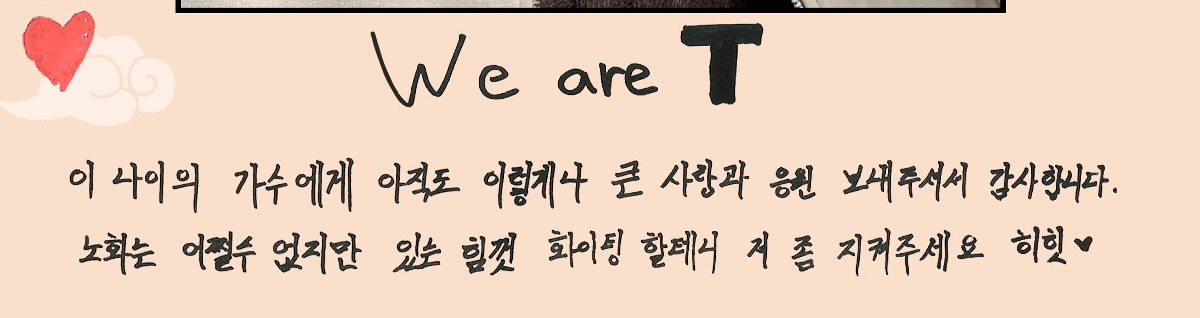 We are T
이 나이의 가수에게 아직도 이렇게나 큰 사랑과 응원 보내주셔서 감사합니다.
노화는 어쩔수 없지만 있는 힘껏 화이팅 할테니 저 좀 지켜주세요 히힛♥